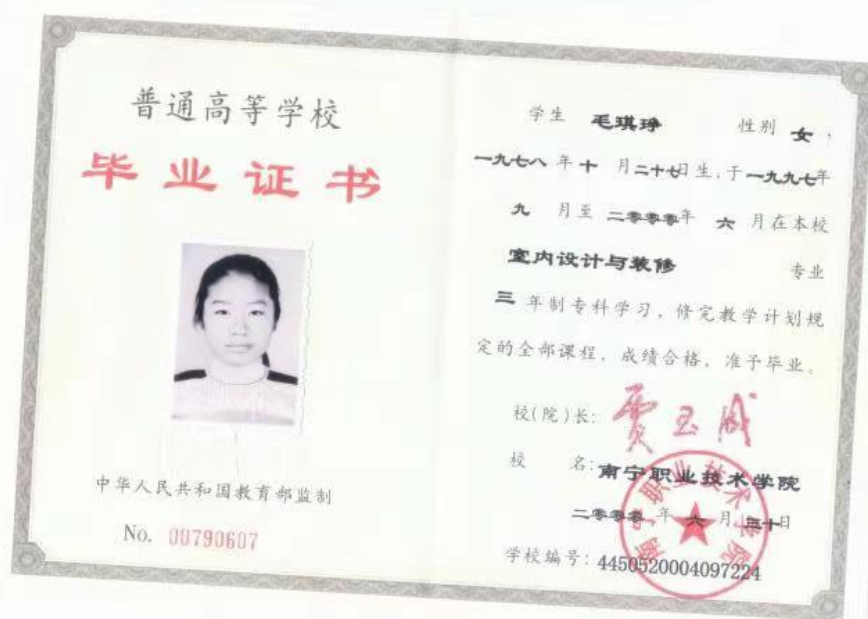 普通高等学校
毕业证书
中华人民共和国教育部监制
No. 00790607
学生 毛琪琤 性别 女，
一九七八 年 十 月 二十七日生，于 一九九七年
九 月至 二零零零年 六 月在本校
室内设计与装修 专业
三 年制专科学习，修完教学计划规
定的全部课程，成绩合格，准予毕业。
校(院)长： 贾玉成
校 名：南宁职业技术学院
二零零零 年 六 月 三十日
南宁职业技术学院
学校编号：4450520004097224